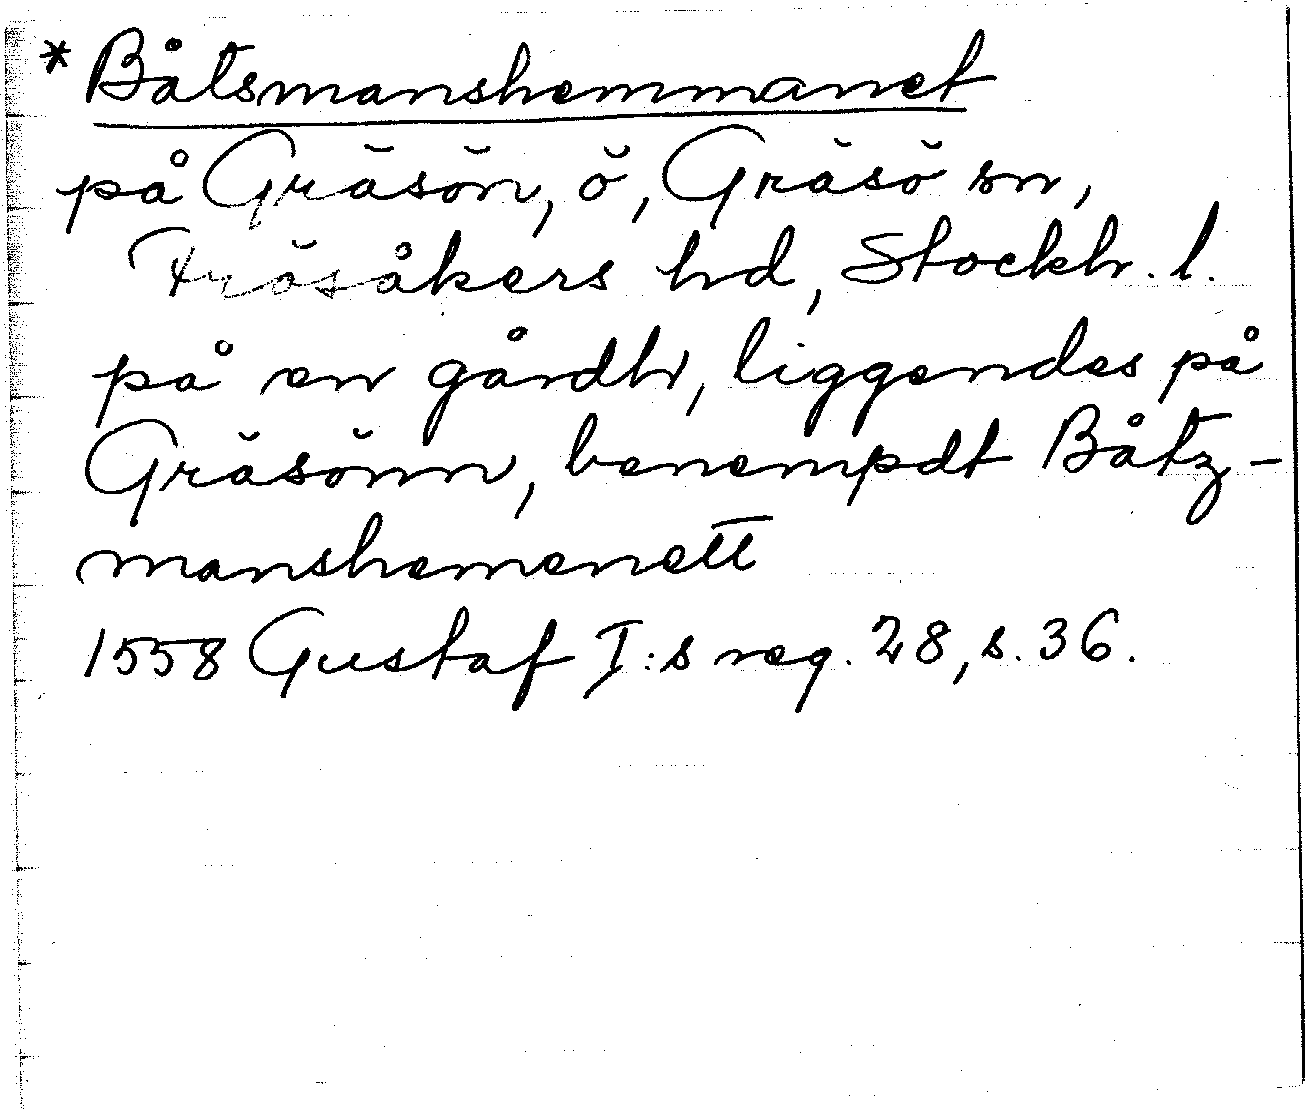 * Båtsmanshemmanet
på Gräsön, ö, Gräsö sn,
Frösåkers hd, Stockh. l.
på en gårdh, liggendes på
Gräsönn, benempdt Båtz-
manshemenett
1558 Gustaf I:s reg. 28, s. 36.